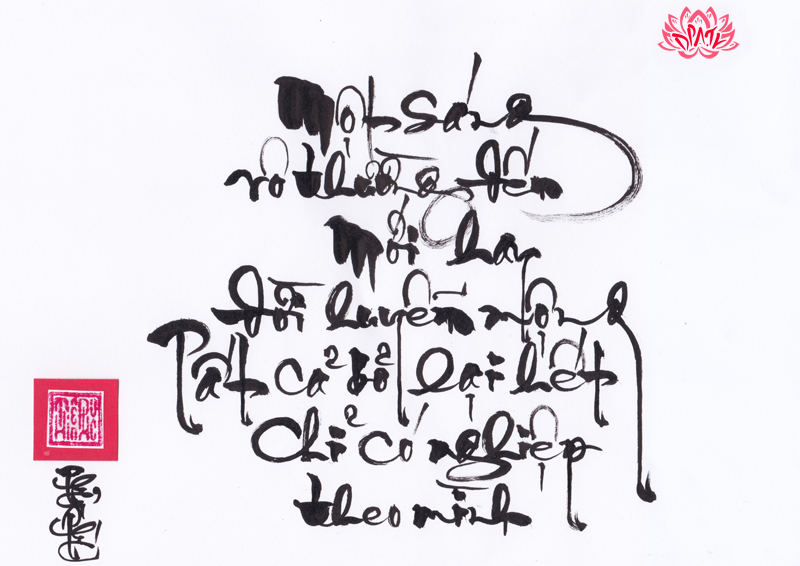 Một sáng
vô thường đến
Mới hay
đời huyễn mộng
Tất cả bỏ lại hết
Chỉ có nghiệp
theo mình